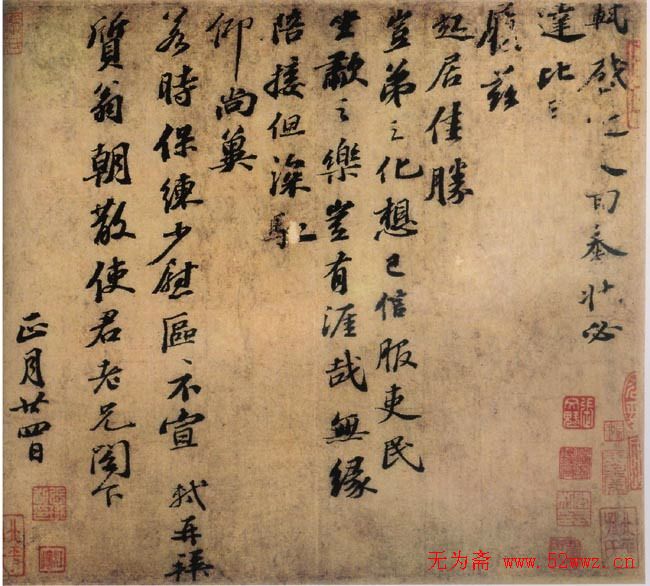 軾啟近人回奉狀必
達比日
履茲
起居佳勝
豈弟之化想已信服吏民
坐歗之樂豈有涯哉無緣
陪接但深馳
仰尚冀
若時保練少慰區〻不宣 軾再拜
質翁朝散使君老兄閣下
正月廿四日
无为斋 www.52wwz.cn